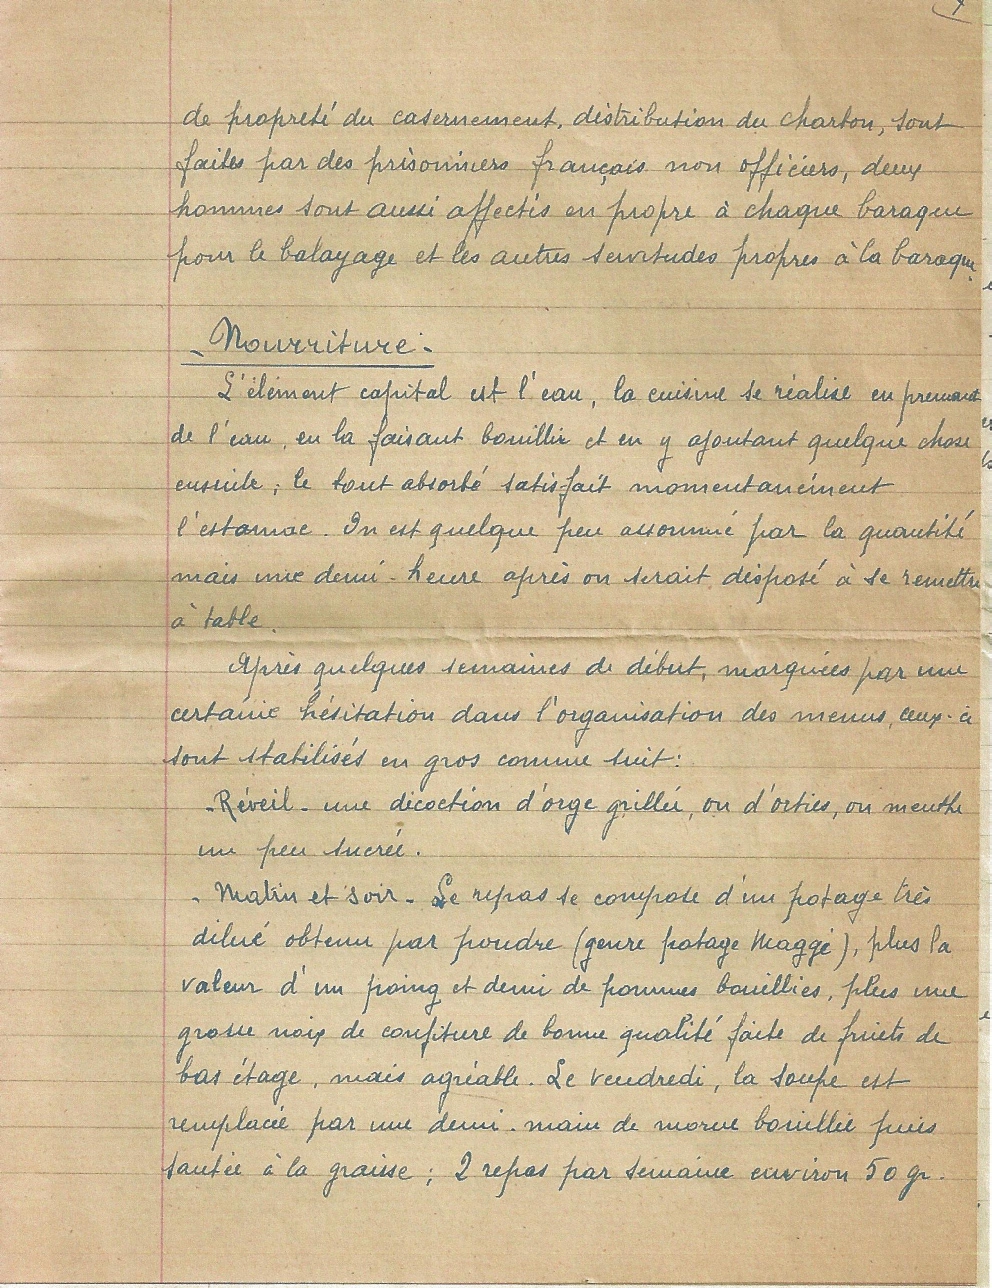 de propreté du casernement, distribution du charbon, sont
faites par des prisonniers français non officiers, deux
hommes sont aussi affectés en propre à chaque baraque
pour le balayage et les autres servitudes propres à la baraque.
- Nourriture -
L'élément capital est l'eau, la cuisine se réalise en prenant
de l'eau, en la faisant bouillir et en y ajoutant quelque chose
ensuite ; le tout absorbé satisfait momentanément
l'estomac. On est quelque peu assommé par la quantité
mais une demi-heure après on serait disposé à se remettre
à table.
Après quelques semaines de début, marquées par une
certaine hésitation dans l'organisation des menus, ceux-ci
sont stabilisés en gros comme suit :
- Réveil - une décoction d'orge grillée, ou d'orties, ou menthe
un peu sucrée.
- Matin et soir - Le repas se compose d'un potage très
dilué obtenu par poudre (genre potage Maggi), plus la
valeur d'un poing et demi de pommes bouillies, plus une
grosse noix de confiture de bonne qualité faite de fruits de
bas étage, mais agréable. Le vendredi, la soupe est
remplacée par une demi-main de morue bouillie puis
sautée à la graisse ; 2 repas par semaine environ 50 gr.